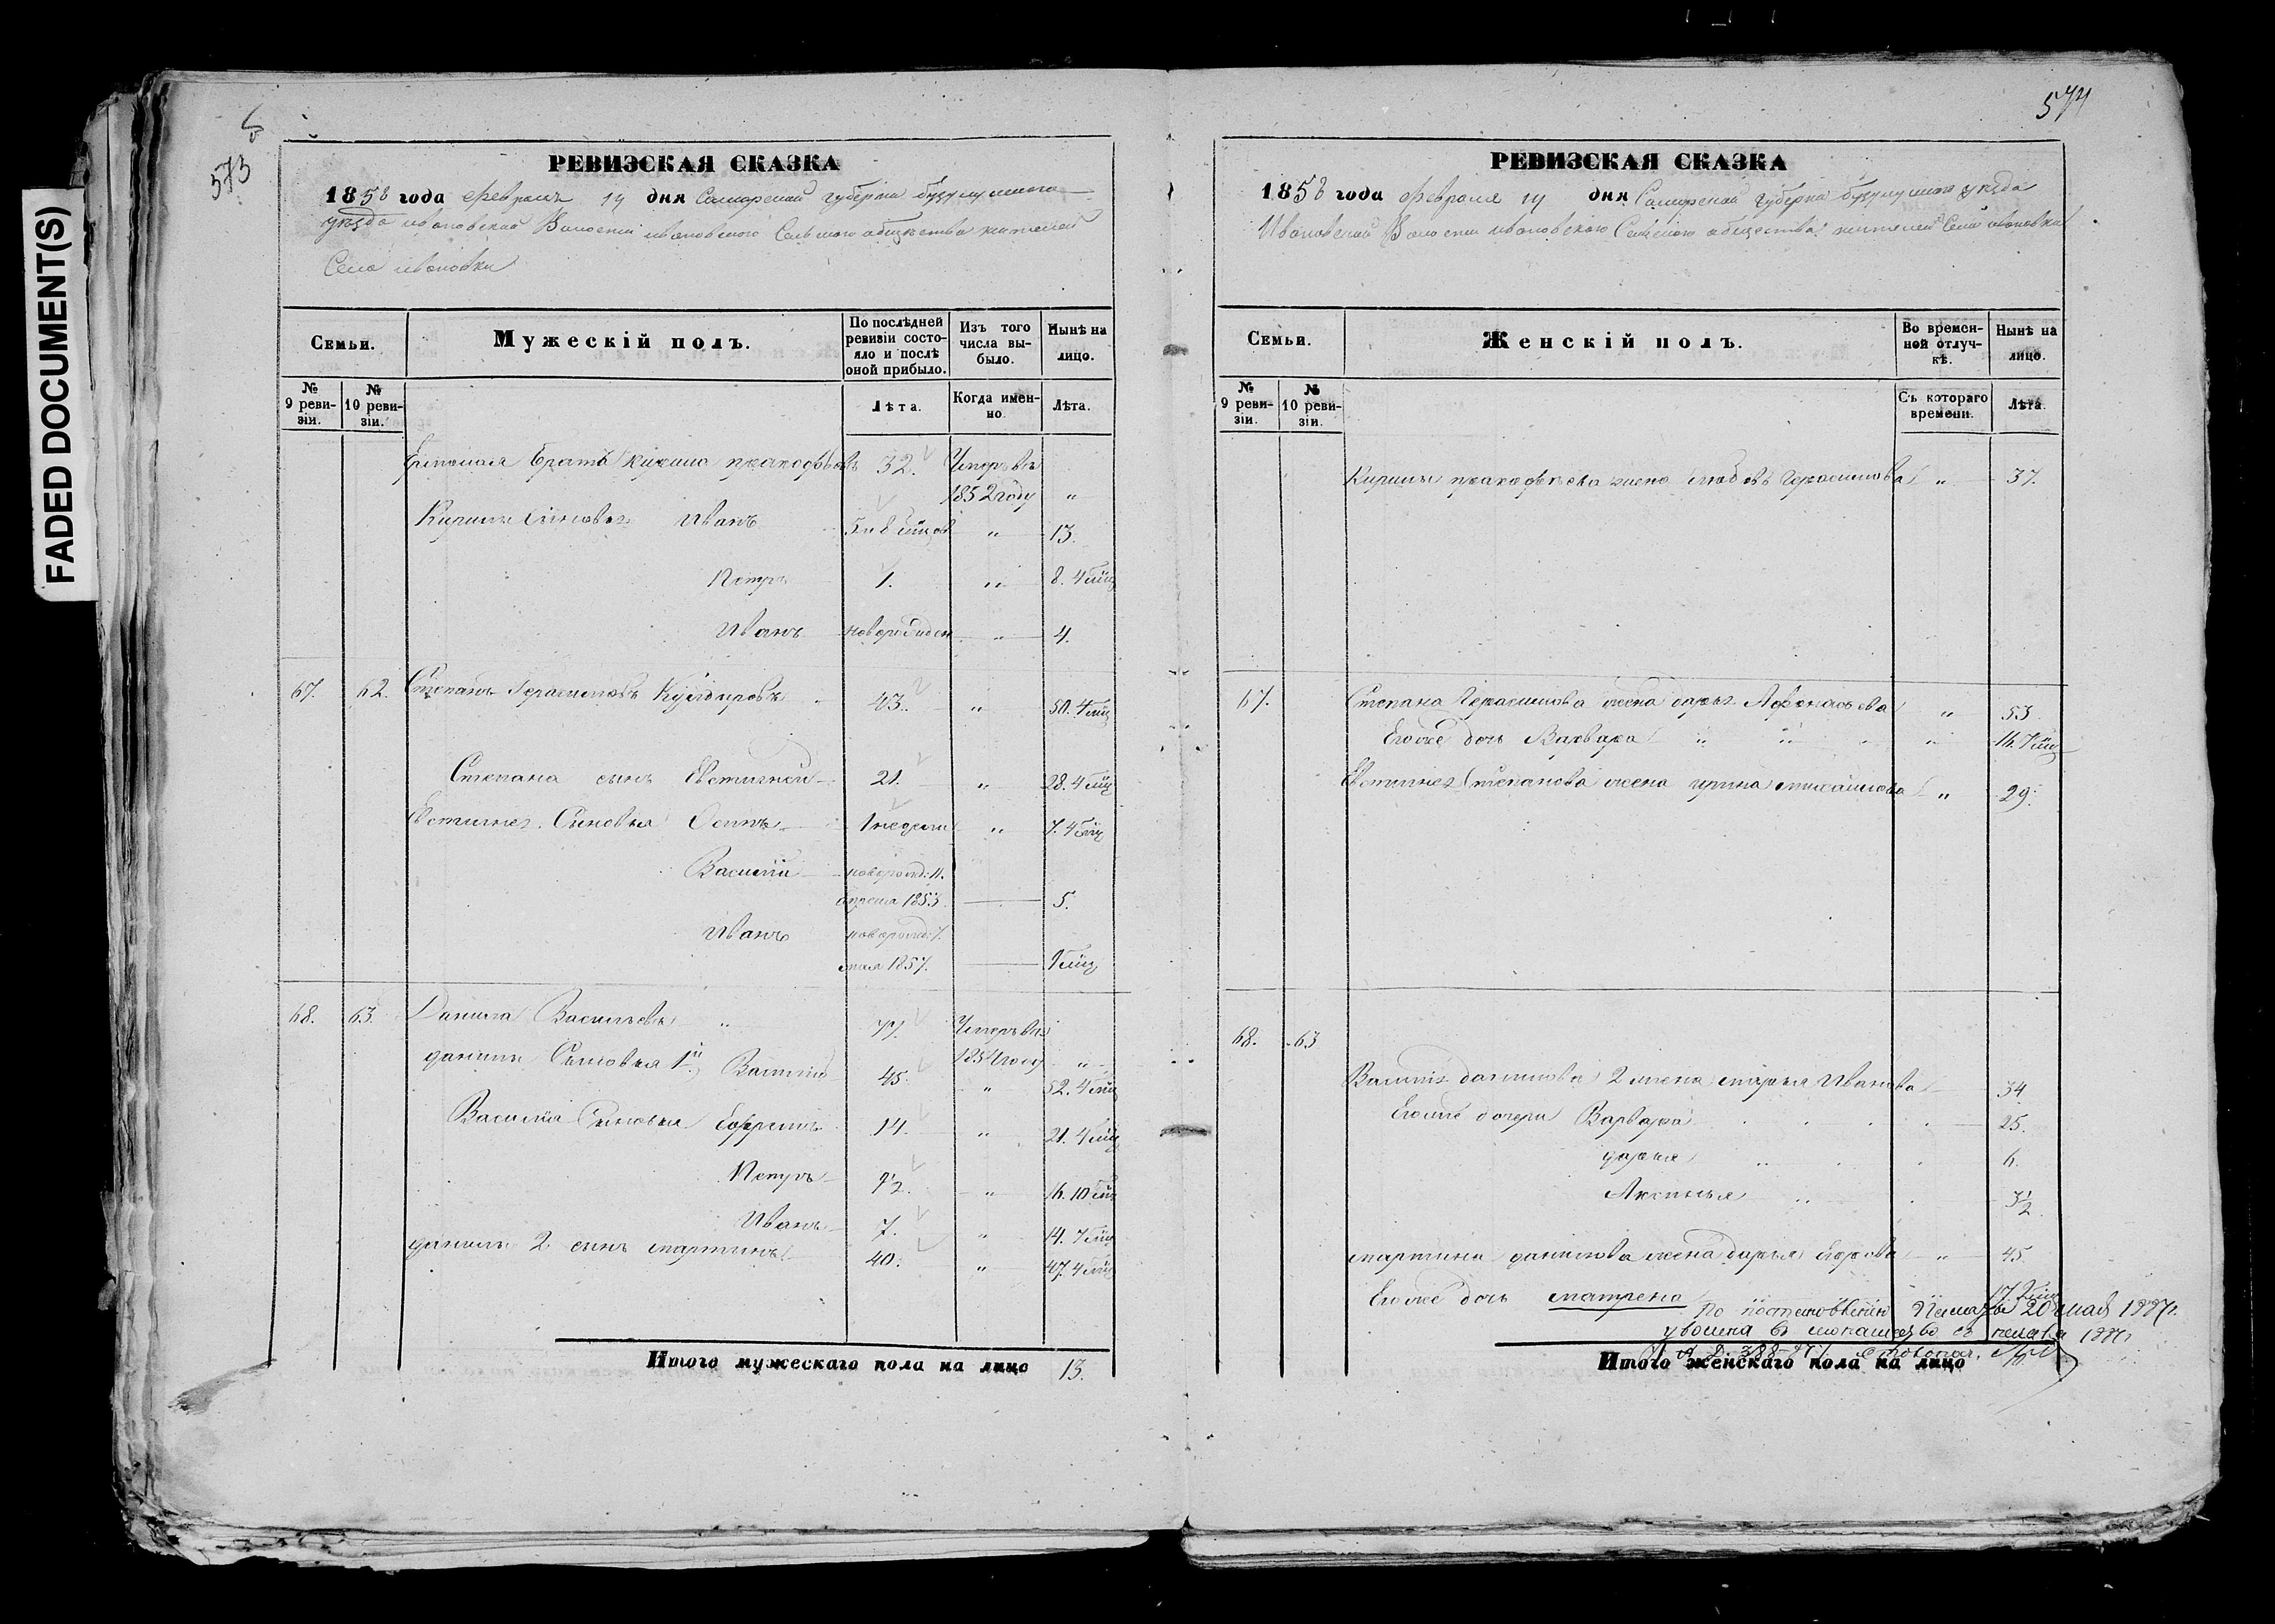 FADED DOCUMENT(S)
573
РЕВИЗСКАЯ СКАЗКА
1858 года февраля 14 дня Самарской губерніи бузулукского
уѣзда ивановской Волости ивановского Сельского общества жителей
Села ивановки
Семьи.
Мужескій полъ.
По послѣдней ревизіи состояло и послѣ оной прибыло.
Изъ того числа выбыло.
Нынѣ на лицо.
№ 9 ревизіи.
№ 10 ревизіи.
Лѣта.
Когда именно.
Лѣта.
братъ Кирила пракофьевъ 32. Умеръ въ
1852 году "
Кирилы Сыновья Иванъ 5 и 8 " 13.
Петръ 1. " 8. 4 мѣц
Иванъ новорожден " 4.
67. 62. Степанъ Герасимовъ 43. " 50. 4 мѣц
Степана сынъ Евстигней 21. " 28. 4 мѣц
Евстигнея Сыновья Осипъ 1 недели " 7. 4 мѣц
Василій новорожд: 11.
апреля 1853 5.
Иванъ новорожд: 7.
мая 1857. 9 мѣц
68. 63. Данила Васильевъ " 77. Умеръ въ
1854 году "
данилы Сыновья 1й Василій 45. " 52. 4 мѣц
Василія Сыновья Ефримъ 14. " 21. 4 мѣц
Петръ 9½. " 16. 10 мѣц
Иванъ 7. " 14. 7 мѣц
данилы 2 сынъ мартинъ 40. " 47. 4 мѣц
Итого мужескаго пола на лицо 13.
574
РЕВИЗСКАЯ СКАЗКА
1858 года февраля 14 дня Самарской губерніи бузулукского уѣзда
Ивановской Волости ивановского Сельского общества жителей Села ивановки
Семьи.
Женскій полъ.
Во временной отлучкѣ.
Нынѣ на лицо.
№ 9 ревизіи.
№ 10 ревизіи.
Съ котораго времени.
Лѣта.
Кирилы пракофьева жена любовь Герасимова " 37.
67. Степана Герасимова жена дарья Афонасьева " 53.
Егоже дочь Варвара " " " 16. 7 мѣц
Евстигнея Степанова жена ирина михайлова " 29.
68. 63
Василія данилова 2 жена марья Иванова 34
Егоже дочери Варвара 25.
дарья 6.
Аксинья 3½
мартина данилова жена дарья Егорова " 45
Егоже дочь матрена 17. 2 мѣц
По постановленію 20 мая 1887г.
уволена в монашество съ 1887г
Итого женскаго пола на лицо